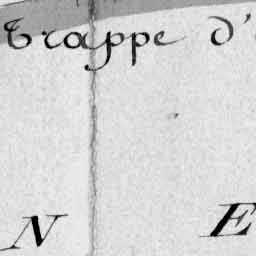 Trappe d'
N E